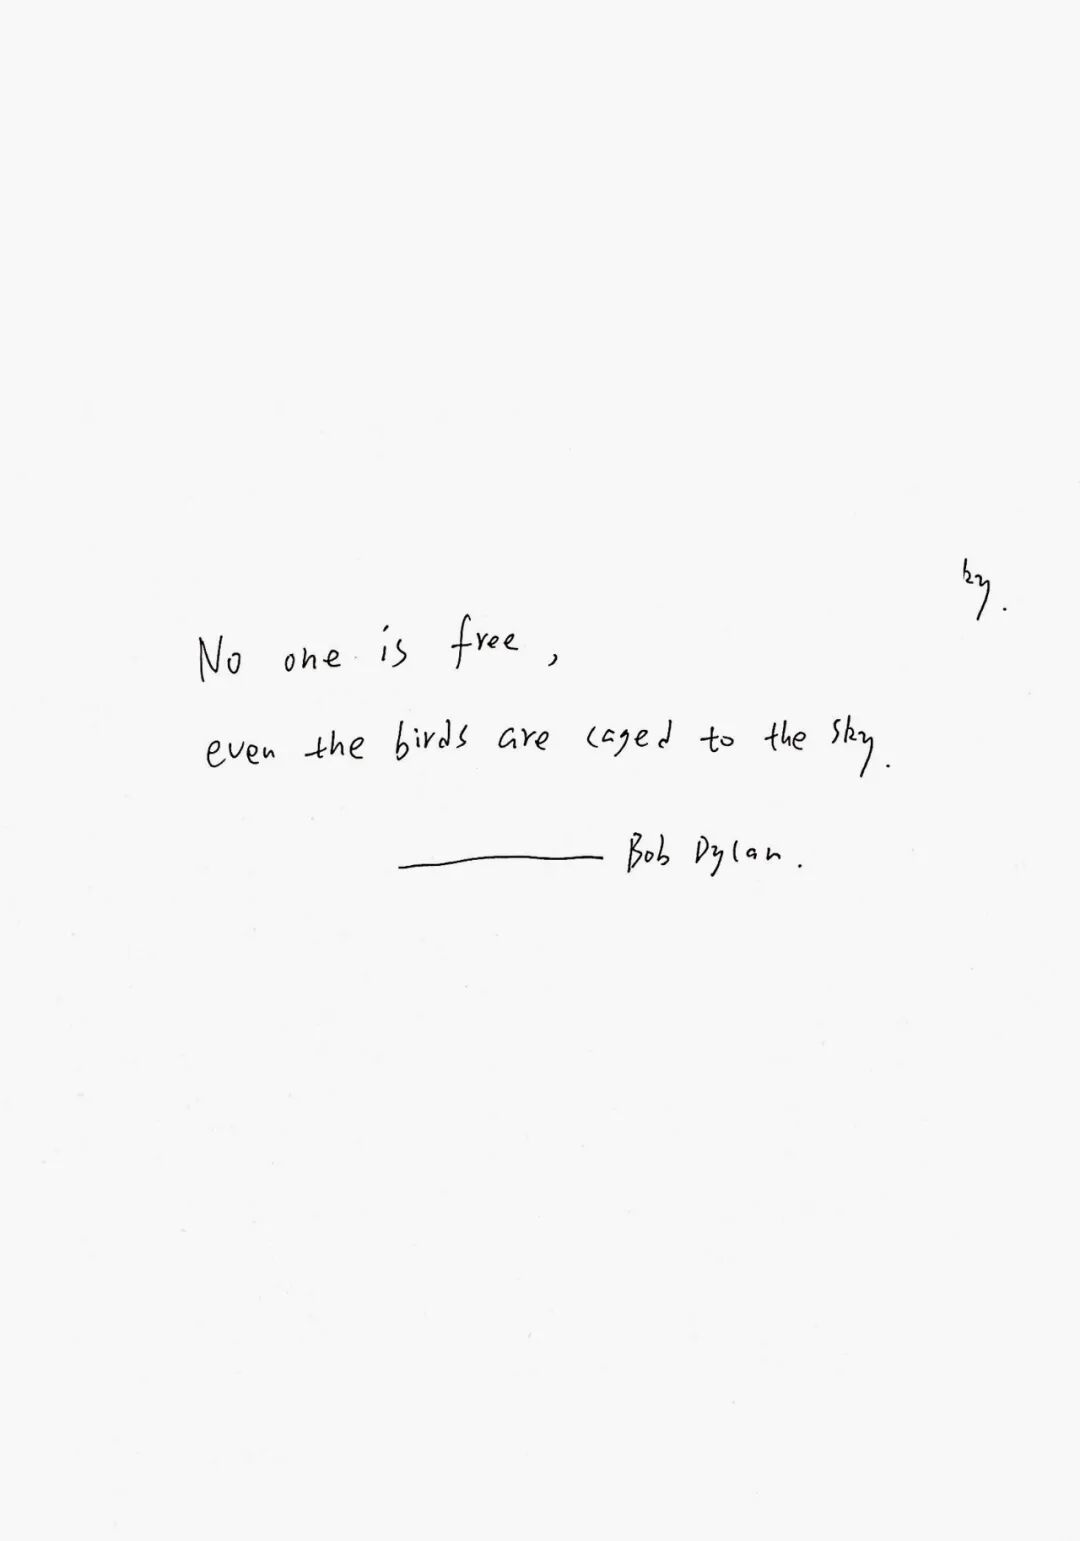 ky.
No one is free,
even the birds are caged to the sky.
——— Bob Dylan.